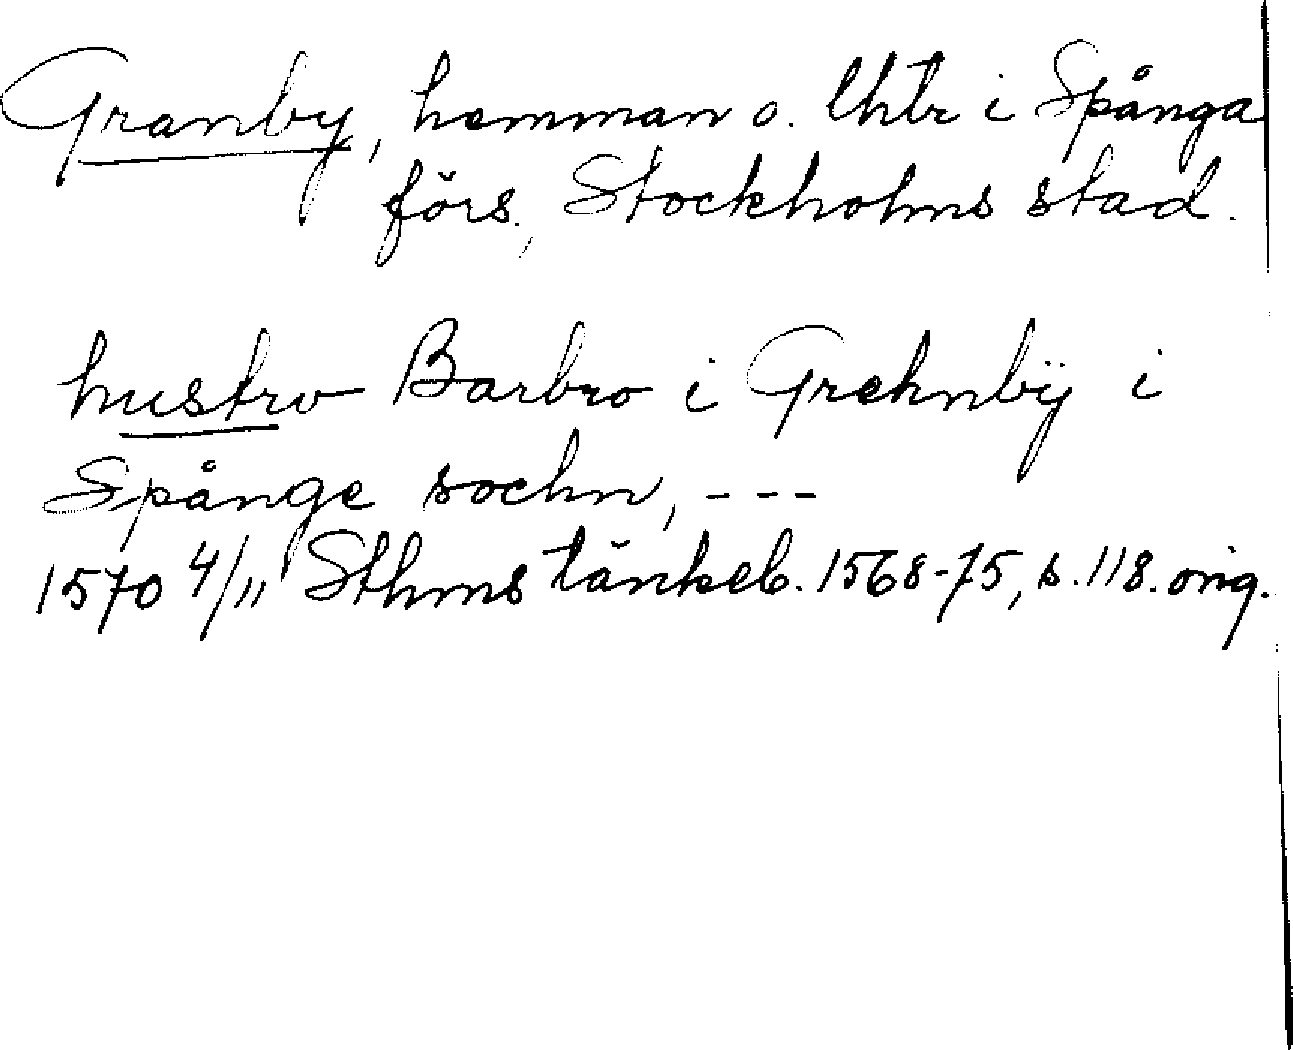 Granby, hemman o. lhtr i Spånga
förs., Stockholms stad.
hustro Barbro i Grehnbÿ i
Spånge sochn, ---
1570 4/11 Sthms tänkeb. 1568-75, s. 118. orig.